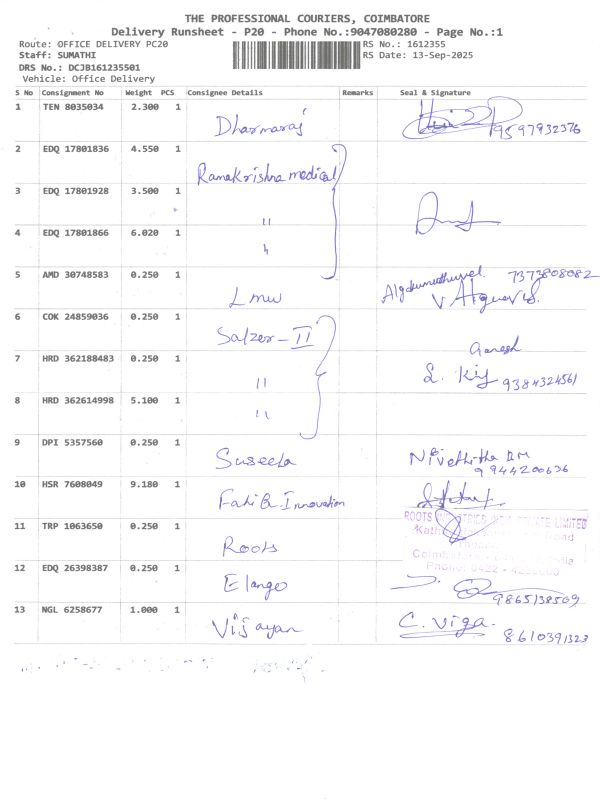 THE PROFESSIONAL COURIERS, COIMBATORE
Delivery Runsheet - P20 - Phone No.:9047080280 - Page No.:1
Route: OFFICE DELIVERY PC20 RS No.: 1612355
Staff: SUMATHI RS Date: 13-Sep-2025
DRS No.: DCJB161235501
Vehicle: Office Delivery
S No Consignment No Weight PCS Consignee Details Remarks Seal & Signature
1 TEN 8035034 2.300 1 Dharmaraj 9597932376
2 EDQ 17801836 4.550 1 Ramakrishna medical
3 EDQ 17801928 3.500 1 "
4 EDQ 17801866 6.020 1 "
5 AMD 30748583 0.250 1 Lmw 7373808082
6 COK 24859036 0.250 1 Salzer - II
7 HRD 362188483 0.250 1 " Ganesh
9384324561
8 HRD 362614998 5.100 1 "
9 DPI 5357560 0.250 1 Suseela
9944200636
10 HSR 7608049 9.180 1 Innovation
11 TRP 1063650 0.250 1 Roots ROOTS PRIVATE LIMITED
Road
Coimbatore
Phone: 0422
12 EDQ 26398387 0.250 1 Elango 9865138509
13 NGL 6258677 1.000 1 Vijayan C. Viga.
8610391323